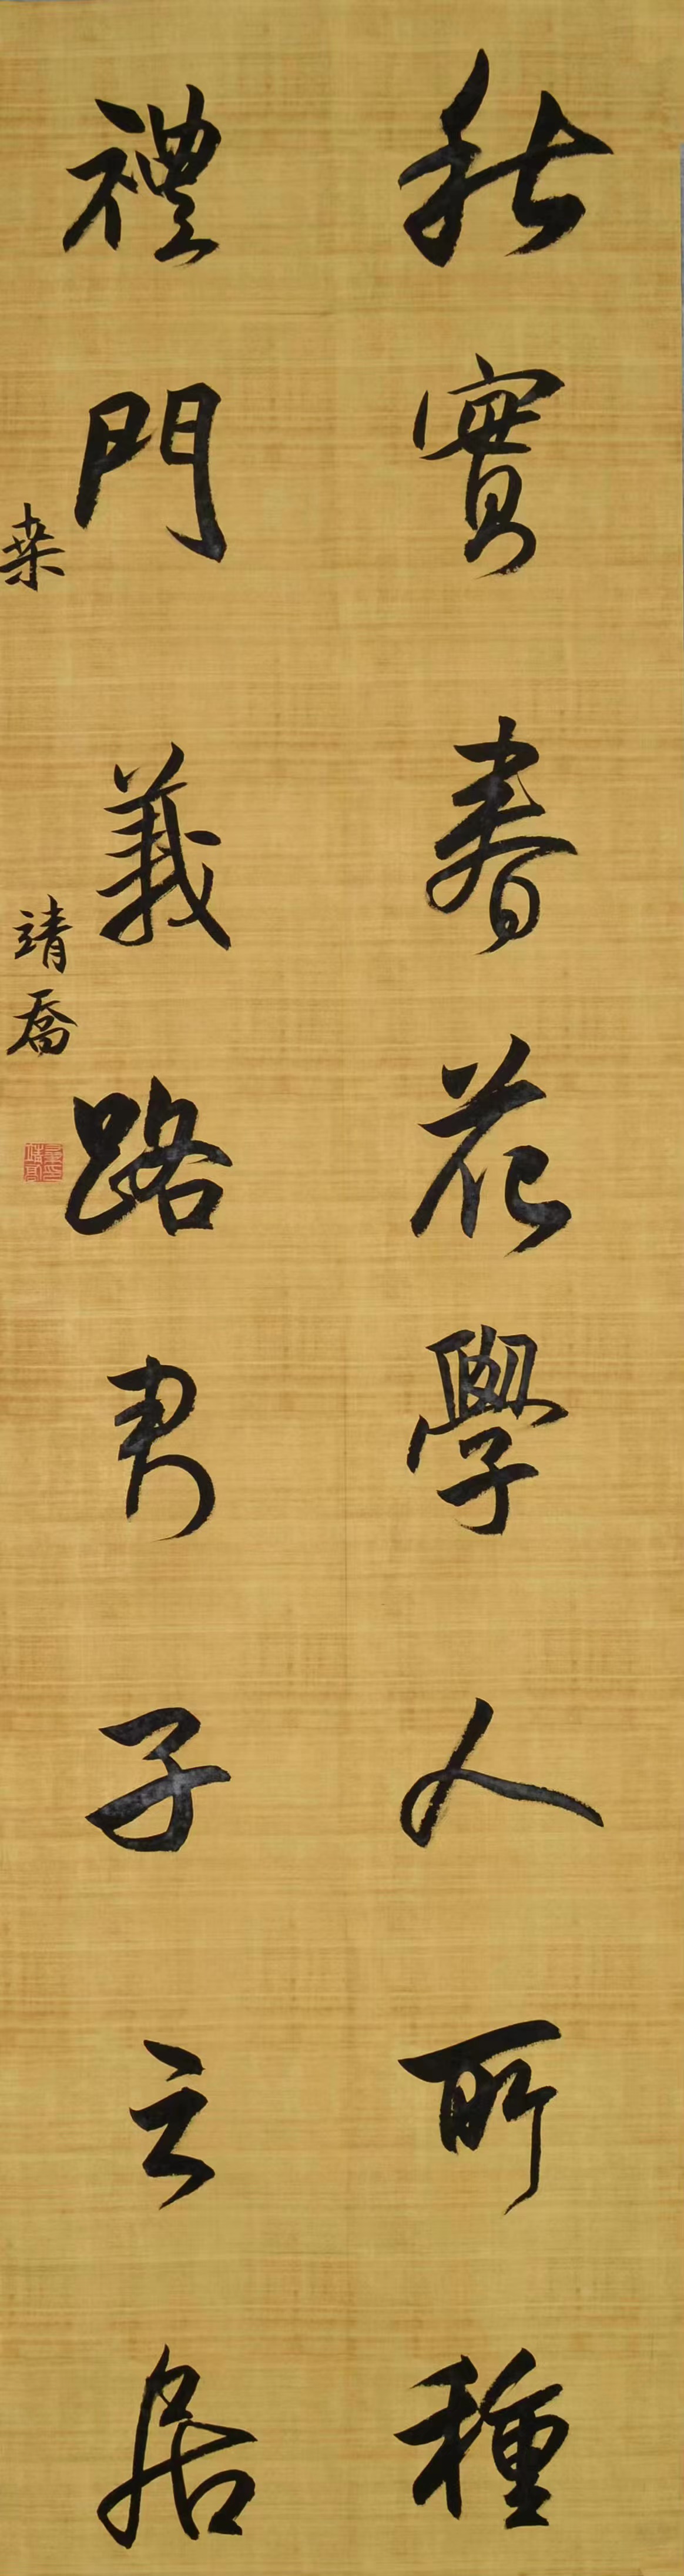 秋實春花學人所種
禮門義路君子之居
桒靖喬